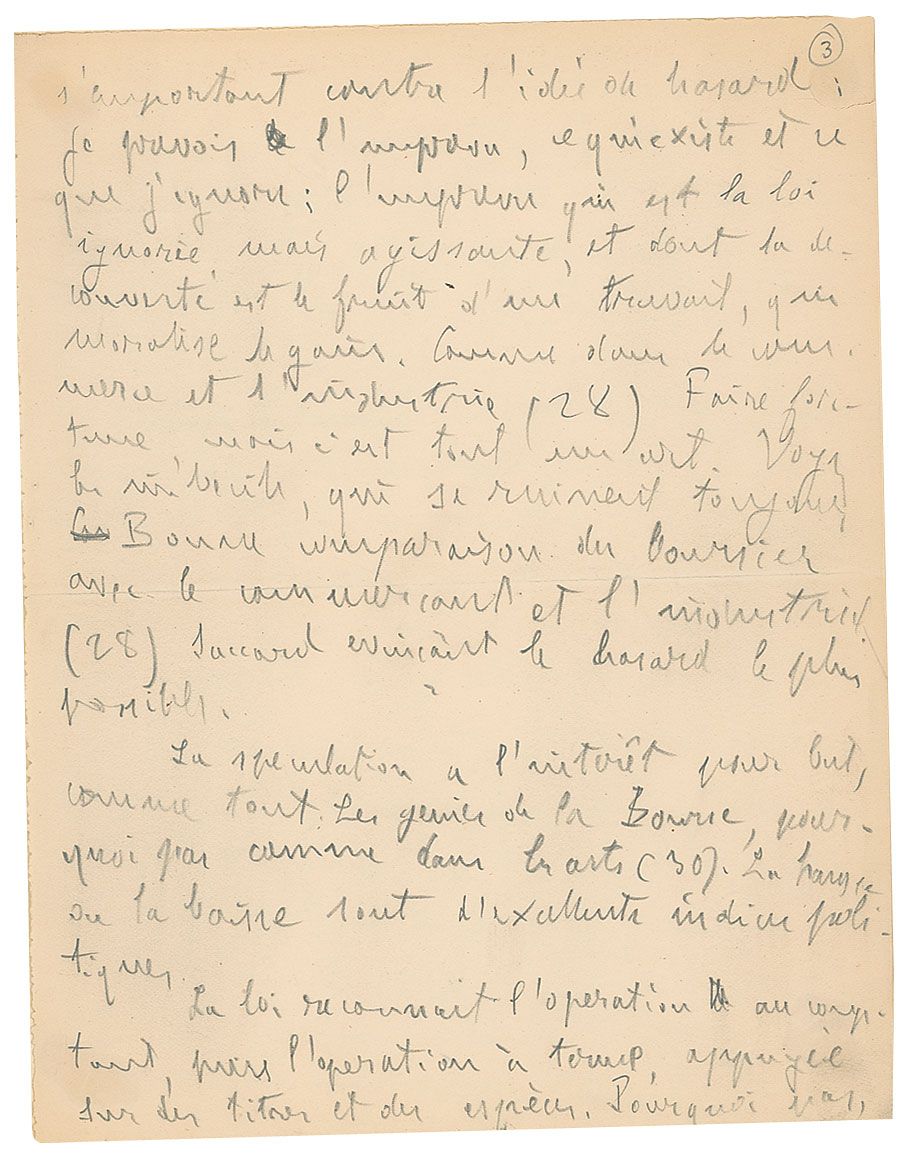 3
s'emportant contre l'idée de hasard :
Je prévois l'imprévu, ce qui existe et ce
que j'ignore ; l'imprévu qui est la loi
ignorée mais agissante, et dont la dé-
couverte est le fruit d'un travail, qui
moralise le gain. Comme dans le com-
merce et l'industrie (28) Faire for-
tune, mais c'est tout un art. Voyez
les imbéciles, qui se ruinent toujours
Bonne comparaison du boursier
avec le commerçant et l'industriel
(28) Saccard evinçant le hasard le plus
possible.
La speculation a l'intérêt pour but,
comme tout. Les genies de la Bourse, pour-
quoi pas comme dans les arts (30). La hausse
ou la baisse sont d'excellents indices poli-
tiques.
La loi reconnait l'operation au comp-
tant, puis l'operation à terme, appuyée
sur des titres et des espèces. Pourquoi pas,